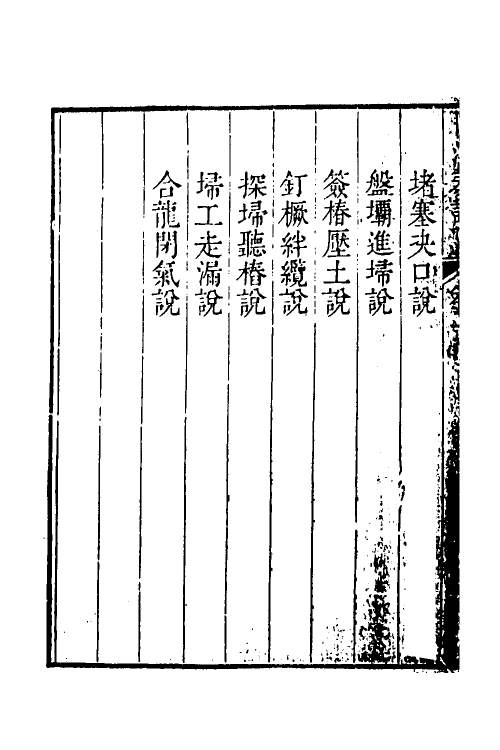 堵塞決口說
盤壩進埽說
簽樁壓土說
釘橛絆纜說
探埽聽樁說
埽工走漏說
合龍閉氣說